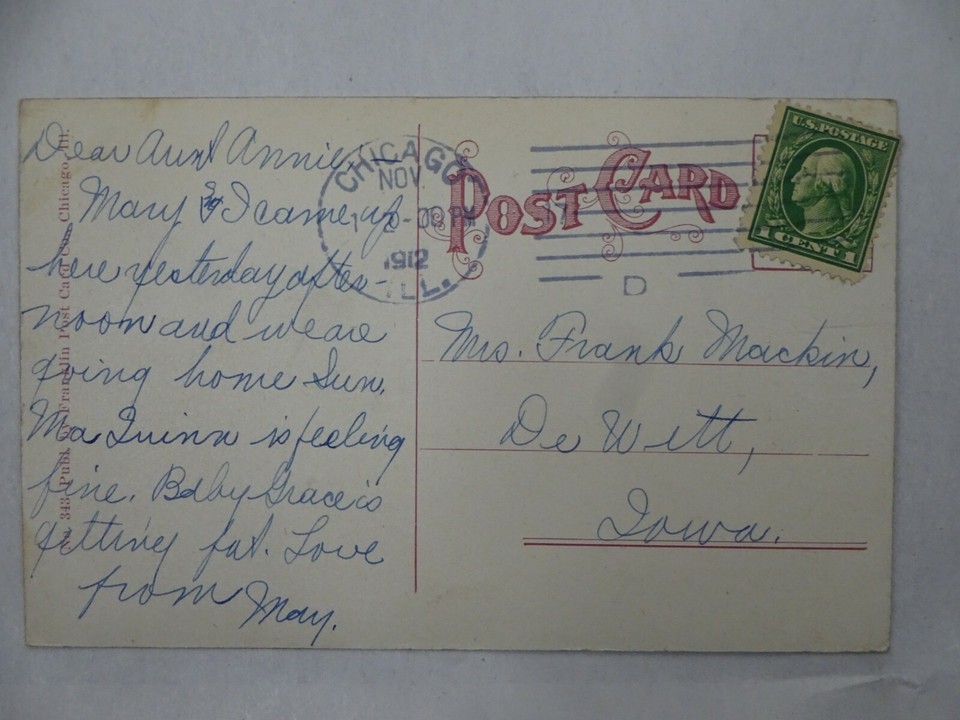 Dear Aunt Annie:—
Mary & I came up
here yesterday after-
noon and we are
going home Sun.
Ma Quinn is feeling
fine. Baby Grace is
getting fat. Love
from May.
No. 343 Publ. Franklin Post Card Co., Chicago, Ill.
CHICAGO
NOV
PM
1912
ILL.
POST CARD
D
U.S. POSTAGE
1 CENT 1
Mrs. Frank Mackin,
De Witt,
Iowa.